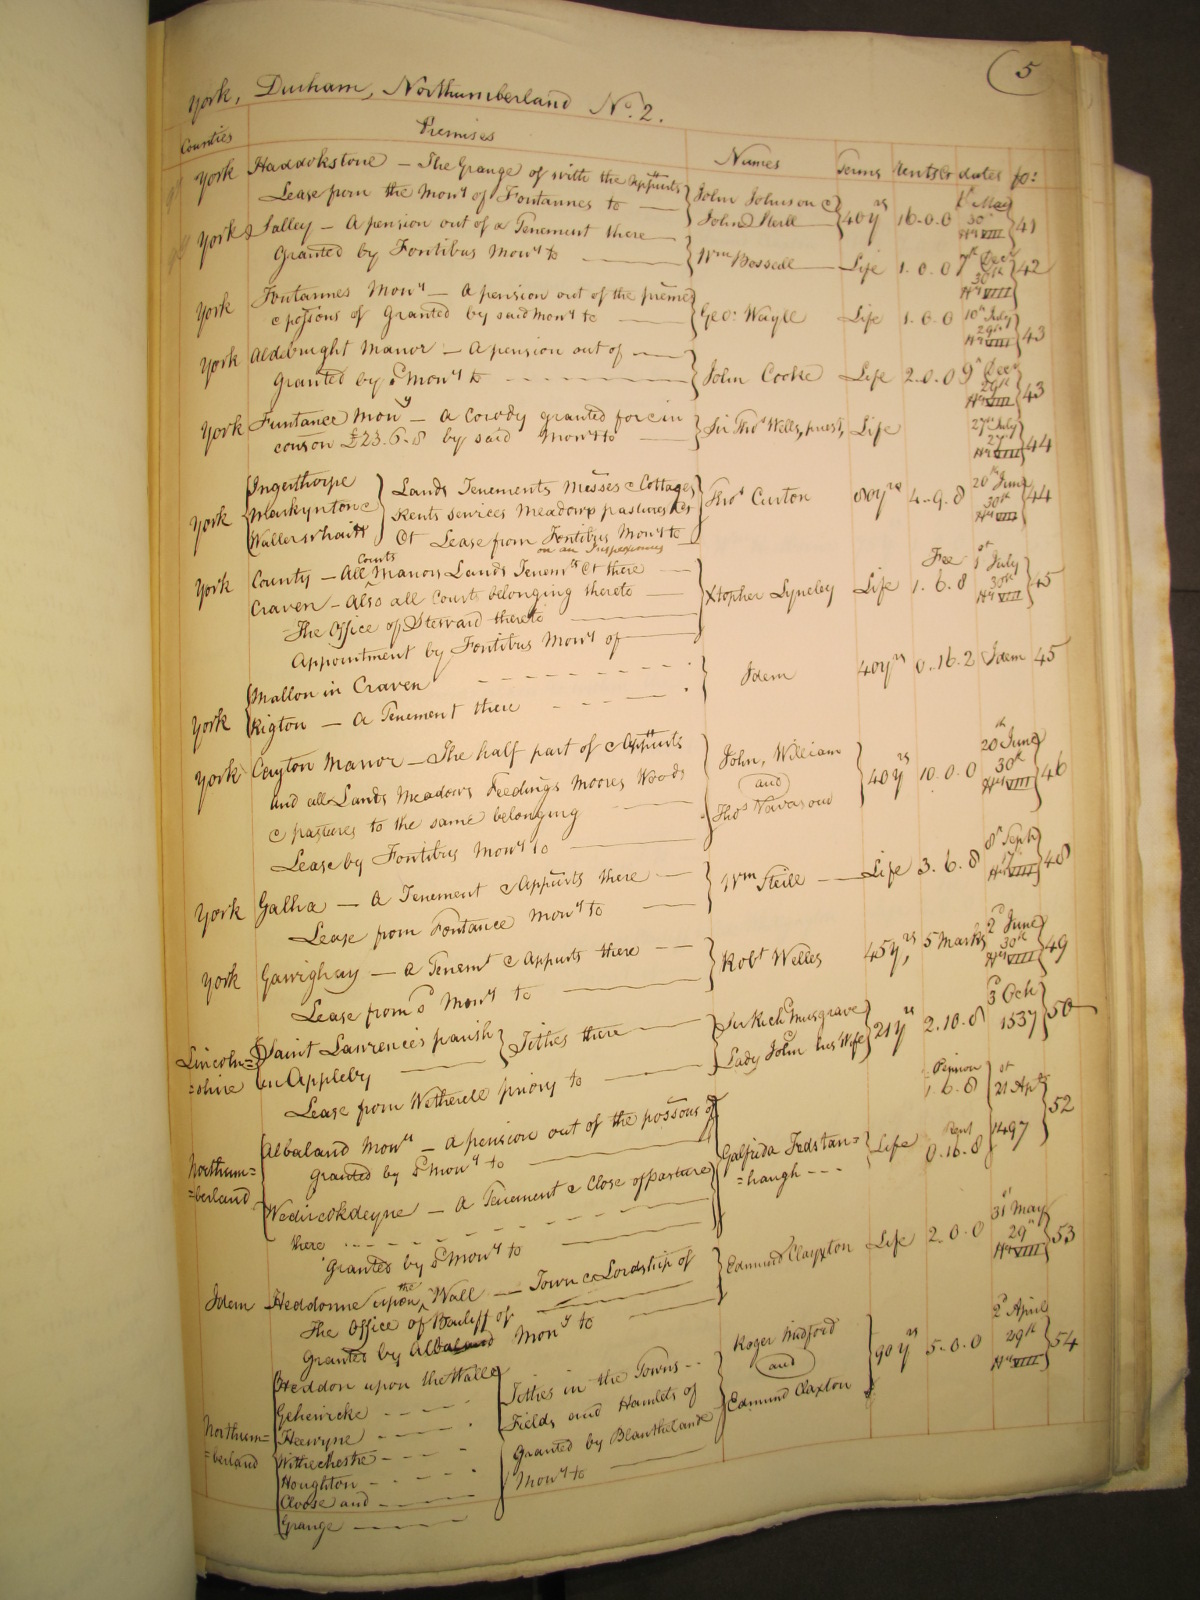 5
York, Durham, Northumberland No. 2.
Counties Premises Names Terms Rents &c dates fo:
York Haddokstone — The Grange of with the Appurts
Lease from the Mony of Fontannes to — John Johnson & John Steill 40 yrs 16.0.0 May 30th Hy VIII 41
York Salley — A pension out of a Tenement there
Granted by Fontibus Mony to — Wm Bossell — Life 1.0.0 7th Decr 30th Hy VIII 42
York Fontannes Mony — A pension out of the premes
& possions of Granted by said Mony to — Geo: Wayle Life 1.6.0 10th July 29th Hy VIII 43
York Aldeburght Manor — A pension out of —
Granted by sd Mony to John Cocke Life 2.0.0 9th Decr 29th Hy VIII 43
York Funtance Mony — A Corody granted for
£23.6.8 by said Mony to — Sir Thos Wells, priest, Life 27th July 27th Hy VIII 44
York Ingerthorpe
Markynton &
Lands Tenements Messes & Cottages
Rents services Meadows pastures &c
&c Lease from Fontibus Mony to Thos Curton 80 yrs 4.9.8 20th June 30th Hy VIII 44
on an Inspeximus
York County — All Courts Manors Lands Tenemts &c there —
Craven — Also all Courts belonging thereto —
The Office of Steward thereto
Appointment by Fontibus Mony of — Xtopher Lyneley Life Fee 1.6.8 1st July 30th Hy VIII 45
York Mallon in Craven
Rigton — A Tenement there Idem 40 yrs 0.16.2 Idem 45
York Cayton Manor — The half part of & Appurts
and all Lands Meadows Feedings Moores Woods
& pastures to the same belonging
Lease by Fontibus Mony to — John, William and Thos Vavasour 40 yrs 10.0.0 20th June 30th Hy VIII 46
York Galha — A Tenement & Appurts there —
Lease from Fontance Mony to — Wm Steile — Life 3.6.8 8th Sept Hy VIII 48
York Gawighay — A Tenemt & Appurts there —
Lease from sd Mony to — Robt Welles 45 yrs, 5 Marks 2d June 30th Hy VIII 49
Lincoln=
=shire Saint Lawrence's parish
in Appleby — Tithes there —
Lease from Wetherele priory to — Sir Richd Musgrave Lady his Wife 21 yrs 2.10.8 3d Octr 1537 50
Northum=
=berland Albaland Mony — A pension out of the possons of
Granted by sd Mony to —
— A Tenement & Close of pasture
there
Granted by sd Mony to — Galfrida Fedstan=
=haugh Life Pension 1.6.8 Rent 0.16.8 21st Apl 1497 52
Idem Heddonne upon the Wall — Town & Lordship of
The Office of Bailiff of
Granted by Albaland Mony to — Edmund Clayxton Life 2.0.0 31st May 29th Hy VIII 53
Northum=
=berland Heddon upon the Walle
Hewyne
Witherchestre
Houghton
Cloose and
Grange
Tithes in the Towns
Fields and Hamlets of
Granted by Blanchelande
Mony to — Roger Mudford and Edmund Claxton 90 yrs 5.0.0 2d April 29th Hy VIII 54